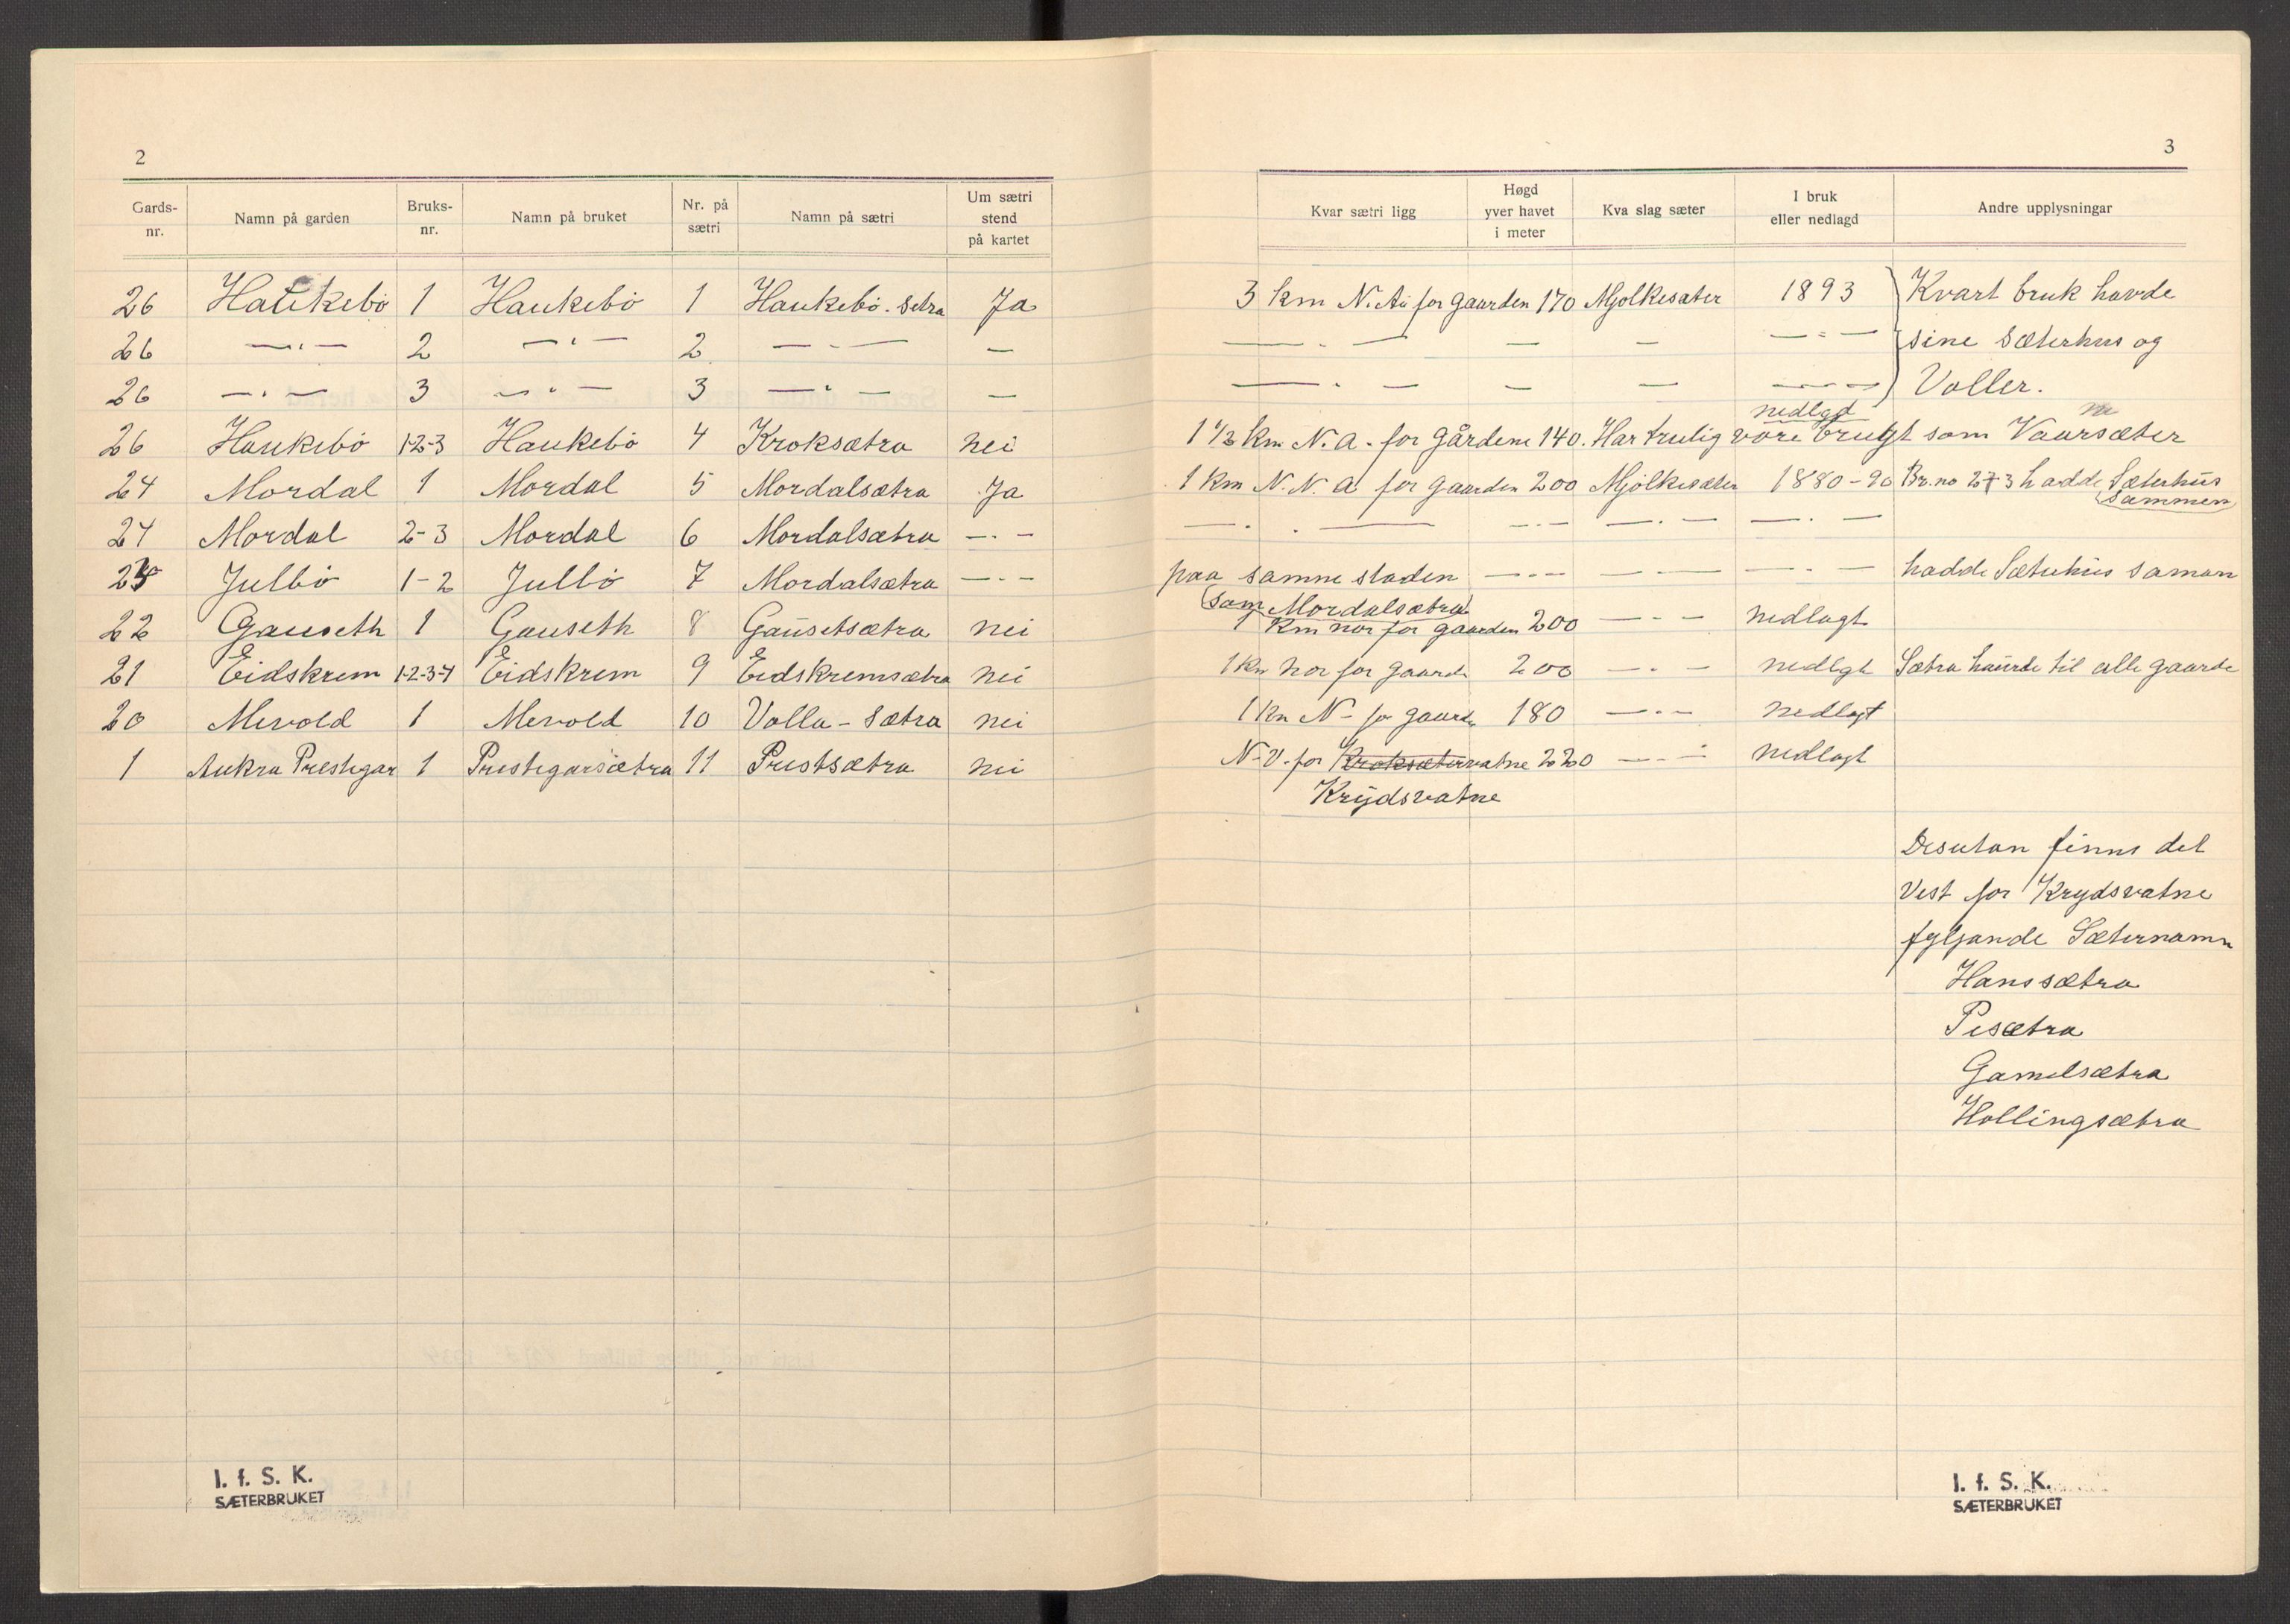 2
Gards-nr. Namn på garden Bruks-nr. Namn på bruket Nr. på sætri Namn på sætri Um sætri stend på kartet
26 Haukebø 1 Haukebø 1 Haukebø-Setra Ja
26 —"— 2 —"— 2 —"— —
26 —"— 3 —"— 3 —"— —
26 Haukebø 1-2-3 Haukebø 4 Kroksætra nei
24 Mordal 1 Mordal 5 Mordalsætra Ja
24 Mordal 2-3 Mordal 6 Mordalsætra —"—
23 Julbø 1-2 Julbø 7 Mordalsætra —"—
22 Gauseth 1 Gauseth 8 Gausetsætra nei
21 Eidskrem 1-2-3-4 Eidskrem 9 Eidskremsætra nei
20 Mevold 1 Mevold 10 Volla-Sætra nei
1 Aukra Prestegar 1 Prestegarsætra 11 Prestsætra nei
I. f. S. K.
SÆTERBRUKET
3
Kvar sætri ligg Høgd yver havet i meter Kva slag sæter I bruk eller nedlagd Andre upplysningar
3 km N. Au for gaarden 170 Mjølkesæter 1893 Kvart bruk havde
—"— — — —"— sine Sæterhus og
—"— — — —"— Voller.
nedlgd
1 1/2 km N. A. for gårdene 140. Har trulig vore brugt som Vaarsæter
1 km N. N. A for gaarden 200 Mjølkesæter 1880-90 Br. no 2+3 hadde Sæterhus
sammen
—"— —"— —"— —"—
paa samme staden —"— —"— —"— hadde Sæterhus saman
(som Mordalsætra)
1 km nor for gaarden 200 —"— nedlagt
1 km nor for gaarde 200 —"— nedlgt Sætra haurde til alle gaarde
1 km N- for gaarde 180 —"— nedlagt
N-V. for Kroksætervatne 220 —"— nedlagt
Krydsvatne
Desutan finns det
Vest for Krydsvatne
fylgjande Sæternamn
Hanssætra
Pesætra
Gamelsætra
Hollingsætra
I. f. S. K.
SÆTERBRUKET